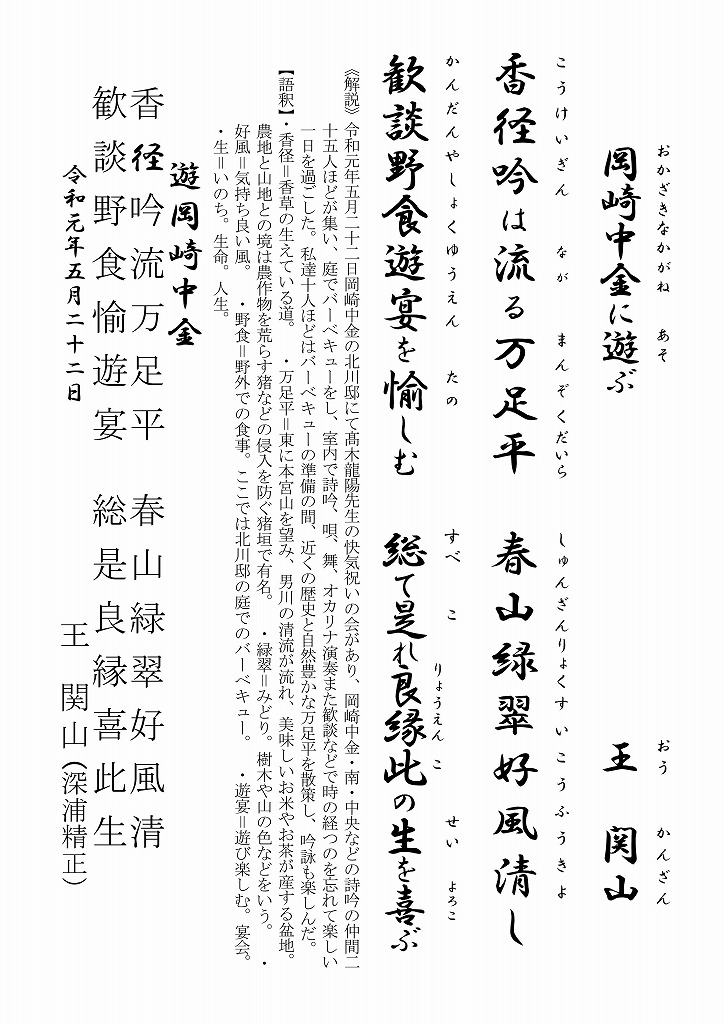 岡崎中金に遊ぶ
おかざきなかがね あそ
王 関山
おう かんざん
香径吟は流る万足平 春山緑翠好風清し
こうけいぎん なが まんぞくだいら しゅんざんりょくすいこうふうきよ
歓談野食遊宴を愉しむ 総て是れ良縁此の生を喜ぶ
かんだんやしょくゆうえん たの すべ こ りょうえん こ せい よろこ
《解説》令和元年五月二十二日岡崎中金の北川邸にて髙木龍陽先生の快気祝いの会があり、岡崎中金・南・中央などの詩吟の仲間二
十五人ほどが集い、庭でバーベキューをし、室内で詩吟、唄、舞、オカリナ演奏また歓談などで時の経つのを忘れて楽しい
一日を過ごした。私達十人ほどはバーベキューの準備の間、近くの歴史と自然豊かな万足平を散策し、吟詠も楽しんだ。
【語釈】・香径＝香草の生えている道。 ・万足平＝東に本宮山を望み、男川の清流が流れ、美味しいお米やお茶が産する盆地。
農地と山地との境は農作物を荒らす猪などの侵入を防ぐ猪垣で有名。 ・緑翠＝みどり。樹木や山の色などをいう。 ・
好風＝気持ち良い風。 ・野食＝野外での食事。ここでは北川邸の庭でのバーベキュー。 ・遊宴＝遊び楽しむ。宴会。
・生＝いのち。生命。人生。
遊岡崎中金
香径吟流万足平 春山緑翠好風清
歓談野食愉遊宴 総是良縁喜此生
令和元年五月二十二日
王 関山（深浦精正）